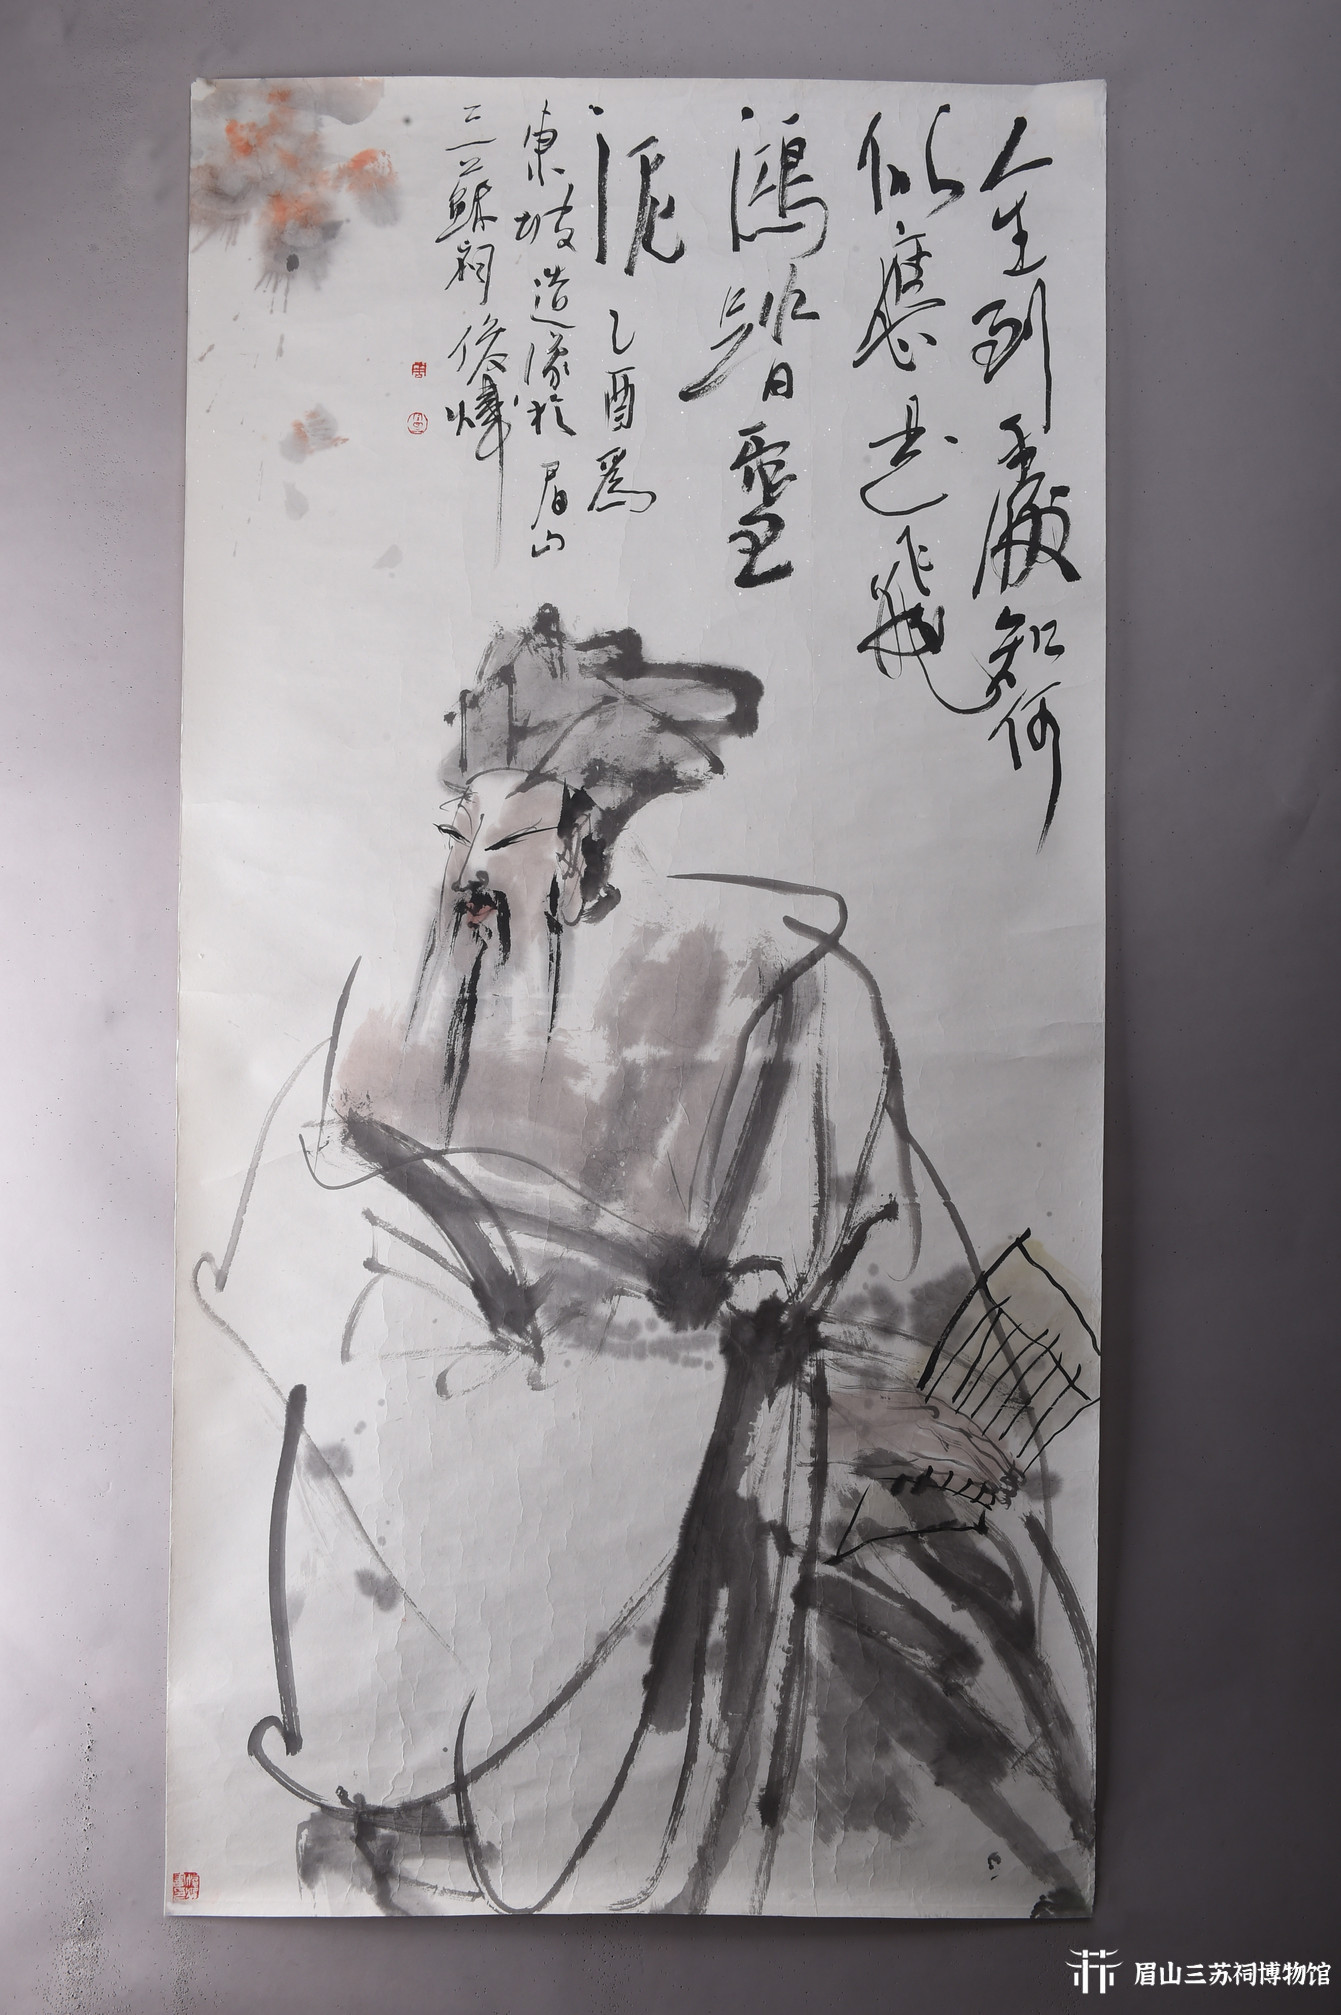 人生到處知何
似應是飛
鴻踏雪
泥 乙酉爲
東坡造像於眉山
三蘇祠 俊
眉山三苏祠博物馆